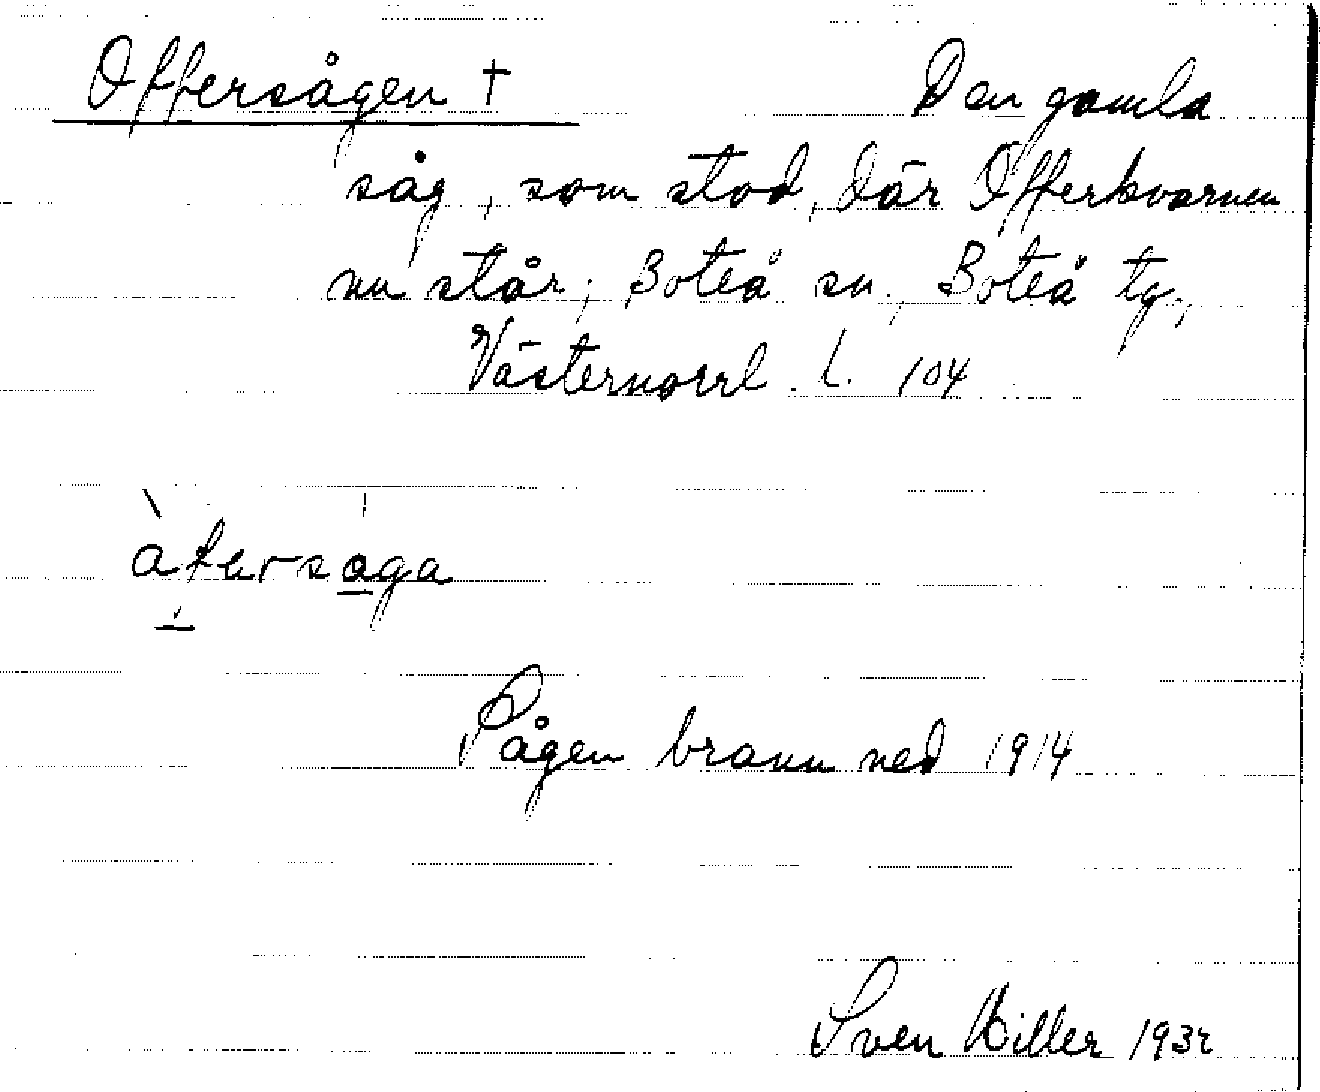 Offersågen † Den gamla
såg, som stod, där Offerkvarnen
nu står; Boteå sn., Boteå tg.,
Västernorrl. l. 104
åfersåga
Sågen brann ned 1914
Sven Hiller 1932